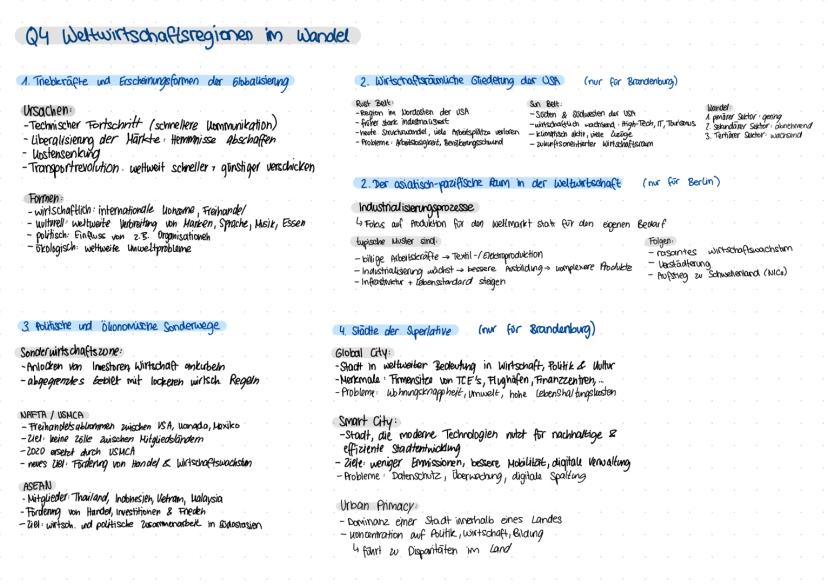 Q4 Weltwirtschaftsregionen im Wandel
1. Triebkräfte und Erscheinungsformen der Globalisierung
Ursachen:
- Technischer Fortschritt (schnellere Kommunikation)
- Liberalisierung der Märkte: Hemmnisse abschaffen
- Kostensenkung
- Transportrevolution: weltweit schneller + günstiger verschicken
Formen:
- wirtschaftlich: internationale Konzerne, Freihandel
- kulturell: weltweite Verbreitung von Marken, Sprache, Musik, Essen
- politisch: Einfluss von z.B. Organisationen
- ökologisch: weltweite Umweltprobleme
2. Wirtschaftsräumliche Gliederung der USA (nur für Brandenburg)
Rust Belt:
- Region im Nordosten der USA
- früher stark industrialisiert
- heute Strukturwandel, viele Arbeitsplätze verloren
- Probleme: Arbeitslosigkeit, Bevölkerungsschwund
Sun Belt:
- Süden & Südwesten der USA
- wirtschaftlich wachsend: High-Tech, IT, Tourismus
- klimatisch aktiv, viele Zuzüge
- zukunftsorientierter Wirtschaftsraum
Wandel:
1. primärer Sektor: gering
2. Sekundärer Sektor: abnehmend
3. Tertiärer Sektor: wachsend
2. Der asiatisch-pazifische Raum in der Weltwirtschaft (nur für Berlin)
Industrialisierungsprozesse
↳ Fokus auf Produktion für den Weltmarkt statt für den eigenen Bedarf
typische Muster sind:
- billige Arbeitskräfte → Textil-/Elektroproduktion
- Industrialisierung wächst → bessere Ausbildung → komplexere Produkte
- Infrastruktur + Lebensstandard steigen
Folgen:
- rasantes Wirtschaftswachstum
- Verstädterung
- Aufstieg zu Schwellenland (NICs)
3. Politische und ökonomische Sonderwege
Sonderwirtschaftszone:
- Anlocken von Investoren, Wirtschaft ankurbeln
- abgegrenztes Gebiet mit lockeren wirtsch. Regeln
NAFTA / USMCA
- Freihandelsabkommen zwischen USA, Kanada, Mexiko
- Ziel: keine Zölle zwischen Mitgliedsländern
- 2020 ersetzt durch USMCA
- neues Ziel: Förderung von Handel & Wirtschaftswachstum
ASEAN
- Mitglieder: Thailand, Indonesien, Vietnam, Malaysia
- Förderung von Handel, Investitionen & Frieden
- Ziel: wirtsch. und politische Zusammenarbeit in Südostasien
4. Städte der Superlative (nur für Brandenburg)
Global City:
- Stadt in weltweiter Bedeutung in Wirtschaft, Politik & Kultur
- Merkmale: Firmensitze von TCE's, Flughäfen, Finanzzentren, ...
- Probleme: Wohnungsknappheit, Umwelt, hohe Lebenshaltungskosten
Smart City:
- Stadt, die moderne Technologien nutzt für nachhaltige &
effiziente Stadtentwicklung
- Ziele: weniger Emmissionen, bessere Mobilität, digitale Verwaltung
- Probleme: Datenschutz, Überwachung, digitale Spaltung
Urban Primacy:
- Dominanz einer Stadt innerhalb eines Landes
- Konzentration auf Politik, Wirtschaft, Bildung
↳ führt zu Disparitäten im Land